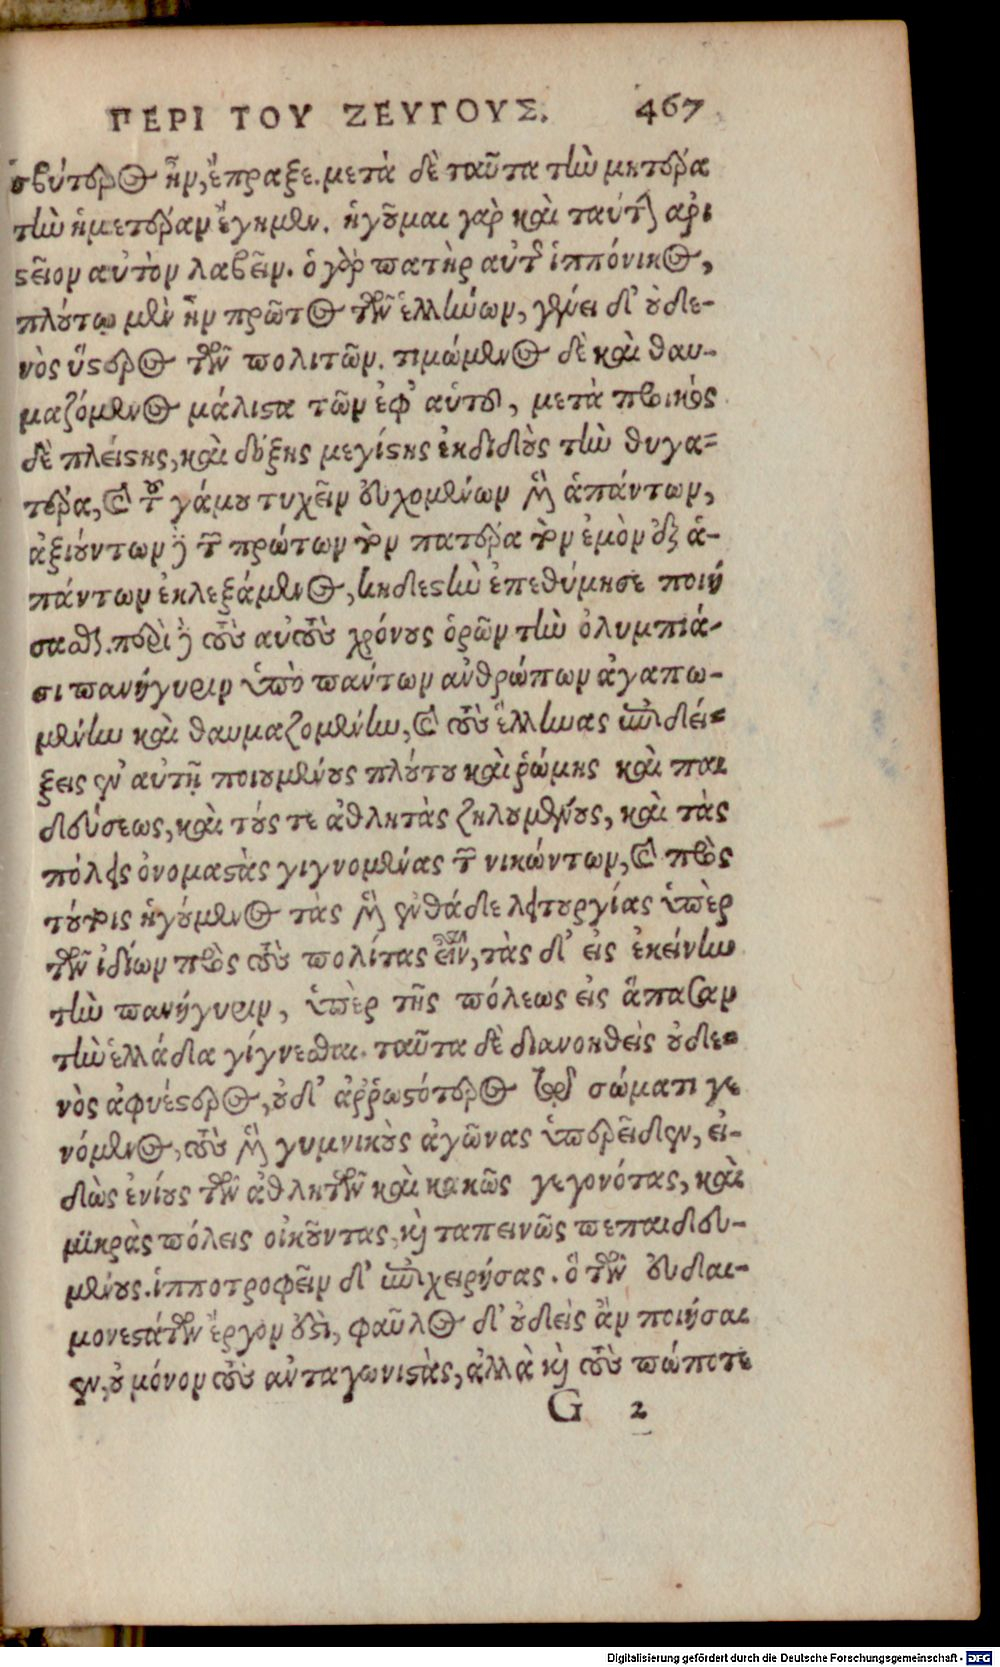 ΠΕΡΙ ΤΟΥ ΖΕΥΓΟΥΣ. 467
σβύτερος ἦν, ἔπραξε. μετὰ δὲ ταῦτα τὴν μητέρα
τὴν ἡμετέραν ἔγημεν. ἡγοῦμαι γὰρ καὶ ταύτην ἀρι
στεῖον αὐτὸν λαβεῖν. ὁ γὰρ πατὴρ αὐτῆς ἱππόνικος,
πλούτῳ μὲν ἦν πρῶτος τῶν ἑλλήνων, γένει δ' οὐδε-
νὸς ὕστερος τῶν πολιτῶν. τιμώμενος δὲ καὶ θαυ-
μαζόμενος μάλιστα τῶν ἐφ' αὑτοῦ, μετὰ προικὸς
δὲ πλείστης, καὶ δόξης μεγίστης ἐκδιδοὺς τὴν θυγα-
τέρα, καὶ τοῦ γάμου τυχεῖν εὐχομένων μὲν ἁπάντων,
ἀξιούντων δὲ τῶν πρώτων τὸν πατέρα τὸν ἐμὸν ἐξ ἁ-
πάντων ἐκλεξάμενος, κηδεστὴν ἐπεθύμησε ποιή
σασθαι. περὶ δὲ τοὺς αὐτοὺς χρόνους ὁρῶν τὴν ὀλυμπιά-
σι πανήγυριν ὑπὸ πάντων ἀνθρώπων ἀγαπω-
μένην καὶ θαυμαζομένην, καὶ τοὺς ἕλληνας ἐπιδεί-
ξεις ἐν αὐτῇ ποιουμένους πλούτου καὶ ῥώμης καὶ παι
δεύσεως, καὶ τούς τε ἀθλητὰς ζηλουμένους, καὶ τὰς
πόλεις ὀνομαστὰς γιγνομένας τῶν νικώντων, καὶ πρὸς
τούτοις ἡγούμενος τὰς μὲν ἐνθάδε λειτουργίας ὑπὲρ
τῶν ἰδίων πρὸς τοὺς πολίτας εἶναι, τὰς δ' εἰς ἐκείνην
τὴν πανήγυριν, ὑπὲρ τῆς πόλεως εἰς ἅπασαν
τὴν ἑλλάδα γίγνεσθαι. ταῦτα δὲ διανοηθεὶς οὐδε-
νὸς ἀφυέστερος, οὐδ' ἀῤῥωστότερος τῷ σώματι γε
νόμενος, τοὺς μὲν γυμνικοὺς ἀγῶνας ὑπερεῖδεν, εἰ-
δὼς ἐνίους τῶν ἀθλητῶν καὶ κακῶς γεγονότας, καὶ
μικρὰς πόλεις οἰκοῦντας, καὶ ταπεινῶς πεπαιδευ-
μένους. ἱπποτροφεῖν δ' ἐπιχειρήσας. ὃ τῶν εὐδαι-
μονεστάτων ἔργον ἐστὶ, φαῦλος δ' οὐδεὶς ἂν ποιήσαι
εν, οὐ μόνον τοὺς ἀνταγωνιστὰς, ἀλλὰ καὶ τοὺς πώποτε
G 2
Digitalisierung gefördert durch die Deutsche Forschungsgemeinschaft - DFG